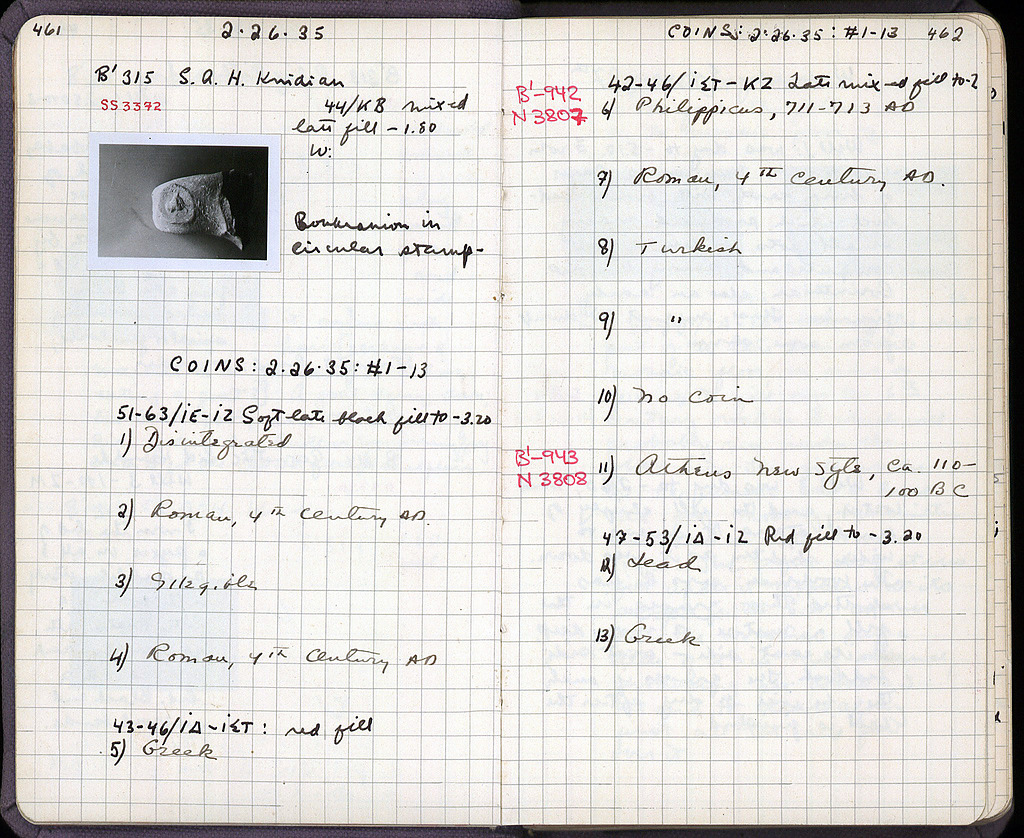 461
2·26·35
B' 315 S. A. H. Knidian
SS 3372
44/KB mixed
late fill -1.80
W:
Boukranion in
circular stamp-
COINS: 2·26·35: #1-13
51-63/ΙΕ-ΙΖ Soft late black fill to -3.20
1) Disintegrated
2) Roman, 4th century AD.
3) Illegible
4) Roman, 4th century AD
43-46/ΙΔ-ΙΣΤ: red fill
5) Greek
COINS: 2·26·35: #1-13 462
42-46/ΙΣΤ-ΚΖ Late mixed fill to -2
B'-942
N 3807
6) Philippicus, 711-713 AD
7) Roman, 4th century AD.
8) Turkish
9) "
10) No coin
B'-943
N 3808
11) Athens New Style, ca. 110-
100 BC
47-53/ΙΔ-ΙΖ Red fill to -3.20
12) Lead
13) Greek